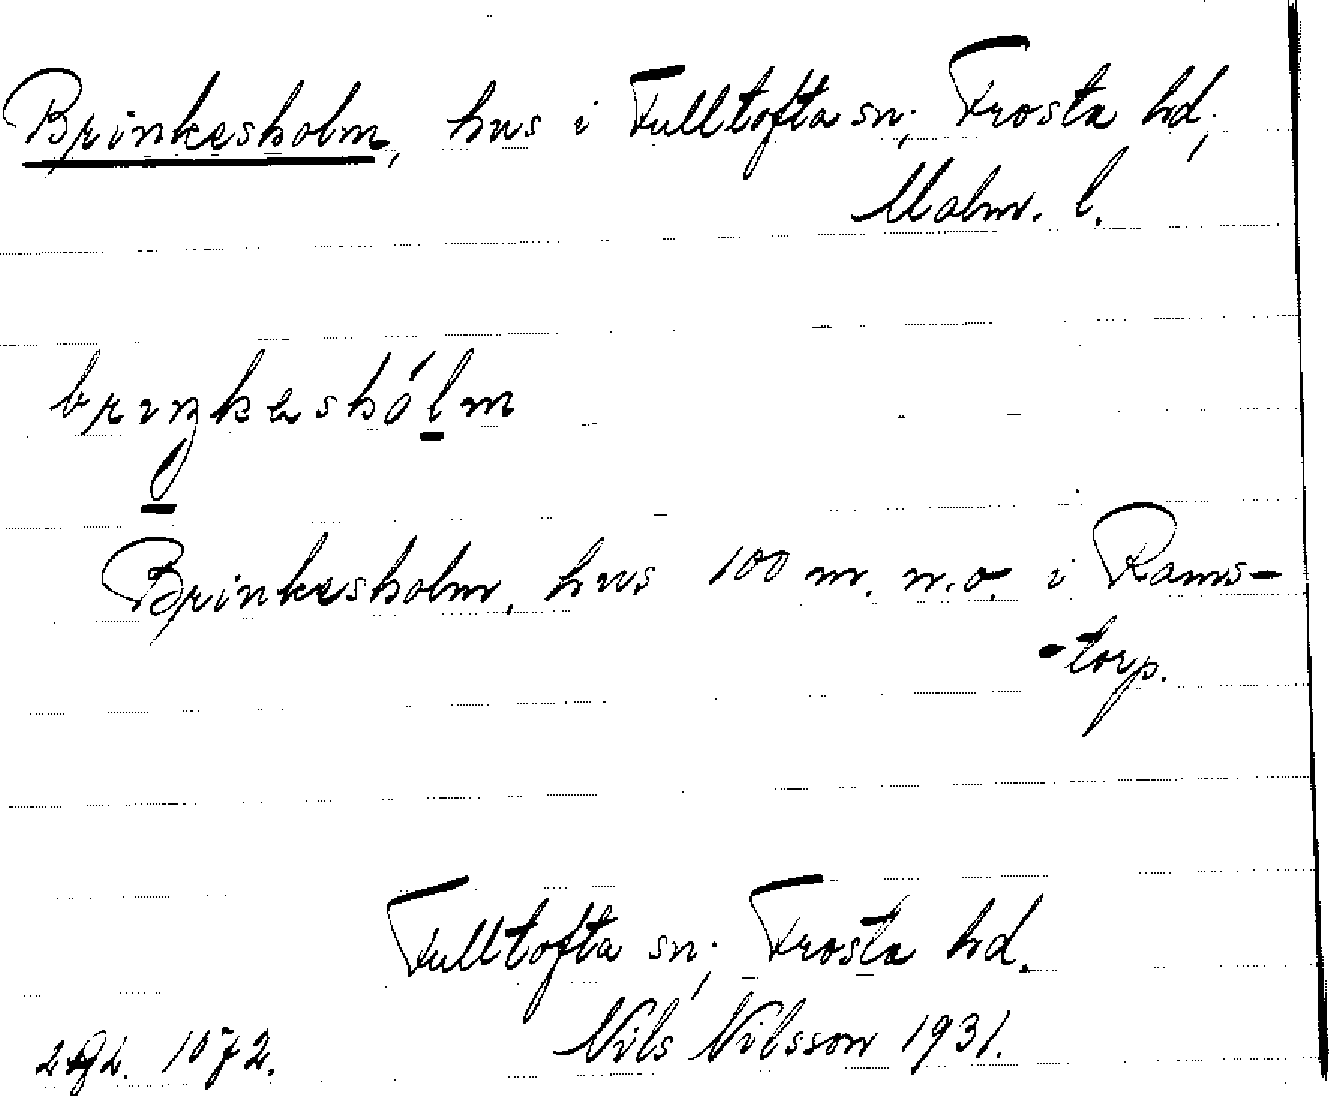 Brinkesholm, hus i Fulltofta sn., Frosta hd.,
Malm. l.
briŋkeshólm
Brinkesholm, hus 100 m. n.o. i Rams-
-torp.
Fulltofta sn., Frosta hd.
Nils Nilsson 1931.
1072.